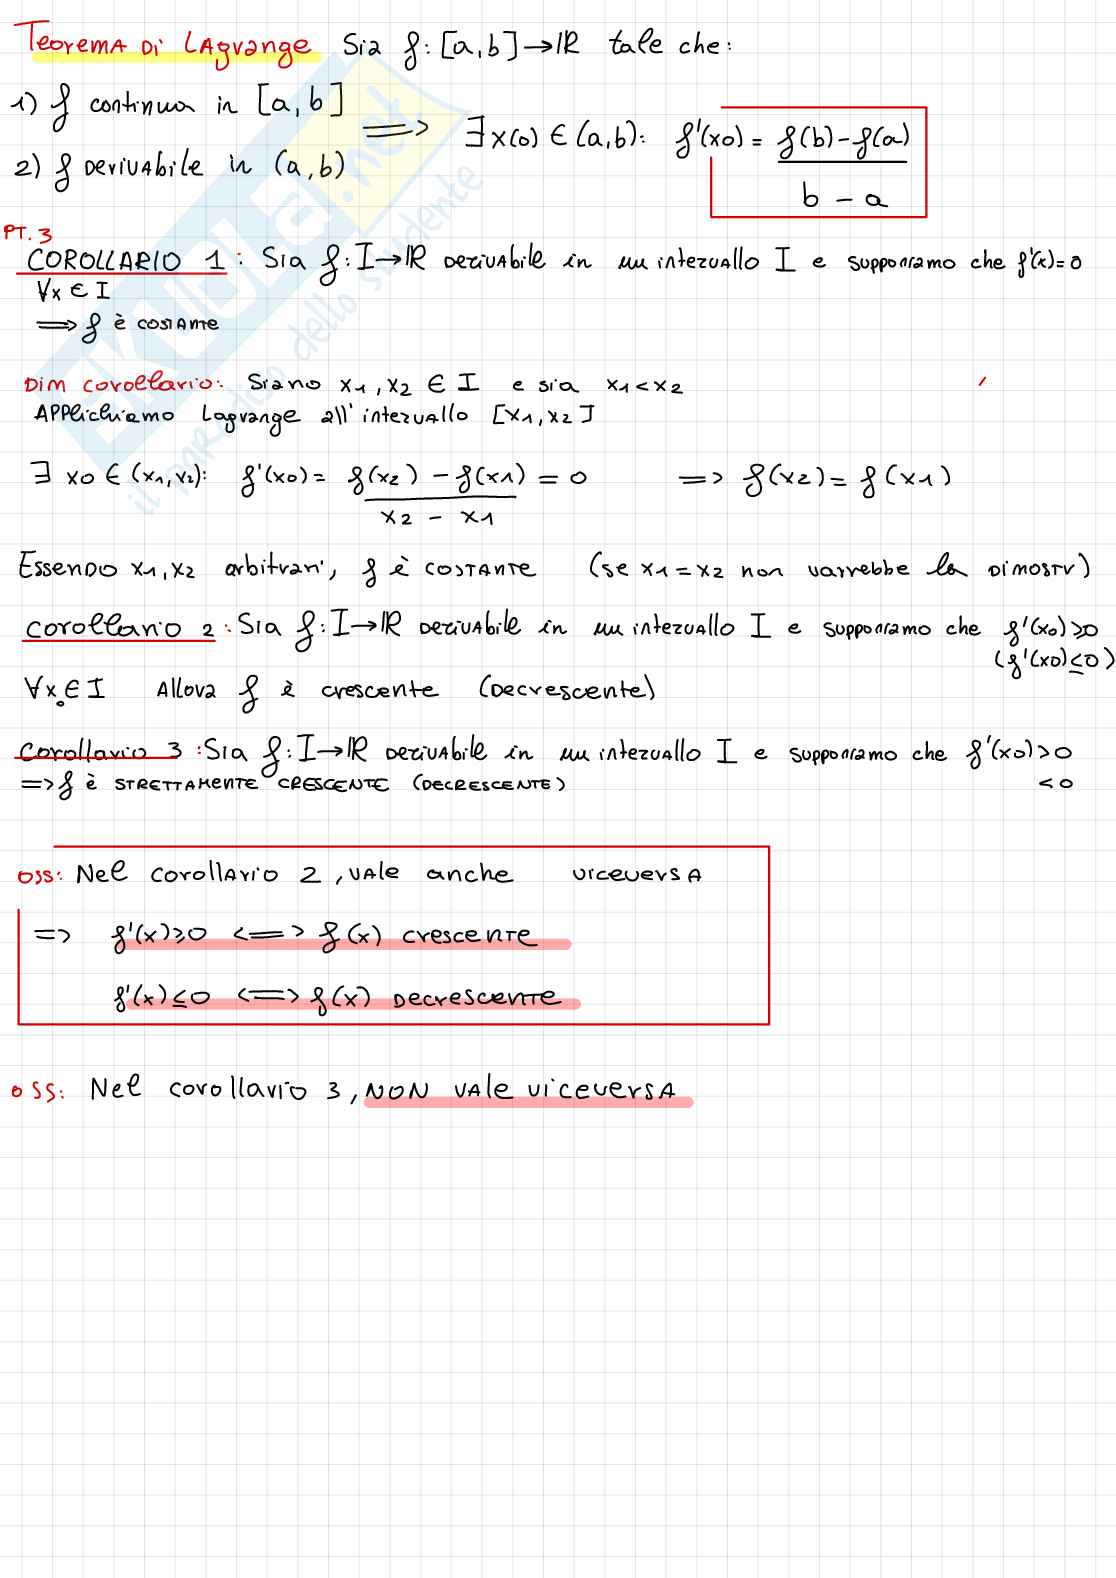 Teorema di Lagrange Sia f: [a,b]→ℝ tale che:
1) f continua in [a,b]
⟹ ∃x(0) ∈ (a,b): f'(x0) = f(b)-f(a) / b - a
2) f derivabile in (a,b)
PT. 3
COROLLARIO 1: Sia f: I→ℝ derivabile in un intervallo I e supponiamo che f'(x)=0
∀x ∈ I
⟹ f è costante
Dim corollario: Siano x1, x2 ∈ I e sia x1<x2
Applichiamo Lagrange all'intervallo [x1,x2]
∃ x0 ∈ (x1,x2): f'(x0) = f(x2) - f(x1) / x2 - x1 = 0 => f(x2) = f(x1)
Essendo x1,x2 arbitrari, f è COSTANTE (se x1=x2 non varrebbe la dimostr)
corollario 2: Sia f: I→ℝ derivabile in un intervallo I e supponiamo che f'(x0)≥0
(f'(x0)≤0)
∀x0∈I Allora f è crescente (Decrescente)
corollario 3: Sia f: I→ℝ derivabile in un intervallo I e supponiamo che f'(x0)>0
=> f è STRETTAMENTE CRESCENTE (DECRESCENTE) <0
oss: Nel corollario 2, vale anche viceversa
=> f'(x)≥0 <=> f(x) crescente
f'(x)≤0 <=> f(x) Decrescente
oss: Nel corollario 3, NON vale viceversa
skuola.net
il paradiso dello studente